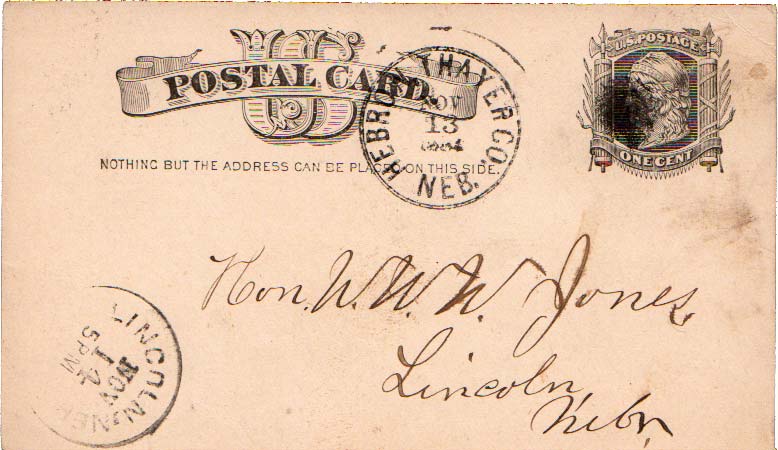 US
POSTAL CARD
NOTHING BUT THE ADDRESS CAN BE PLACED ON THIS SIDE.
HEBRON THAYER CO.
NOV
13
1884
NEB.
U.S. POSTAGE
ONE CENT
Hon. W. W. W. Jones,
Lincoln,
Nebr.
LINCOLN, NEB
NOV
14
5 PM